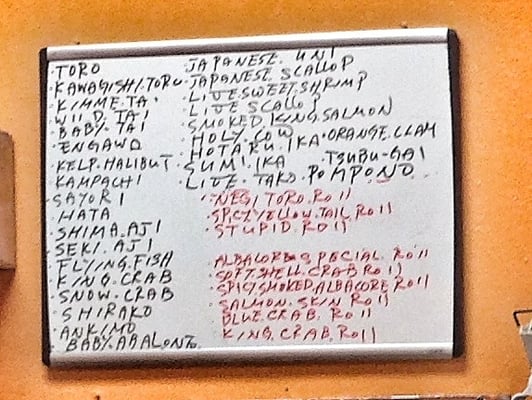 · TORO
· KAWAGISHI.TORO
· KIMME.TAI
· WILD.TAI
· BABY.TAI
· ENGAWA
· KELP.HALIBUT
· KAMPACHI
· SAYORI
· HATA
· SHIMA.AJI
· SEKI.AJI
· FLYING.FISH
· KING.CRAB
· SNOW.CRAB
· SHIRAKO
· ANKIMO
· BABY.ABALONE
· JAPANESE.UNI
· JAPANESE.SCALLOP
· LIVE.SWEET.SHRIMP
· LIVE SCALLOP
· SMOKED.KING.SALMON
· HOLY.COW
· HOTARU.IKA · ORANGE.CLAM
· SUMI.IKA · TSUBU-GAI
· LIVE.TAKO · POMPONO
· NEGI TORO.Roll
· SPICY YELLOW.TAIL Roll
· STUPID.Roll
· ALBACORE SPECIAL.Roll
· SOFT.SHELL.CRAB Roll
· SPICY SMOKED.ALBACORE Roll
· SALMON.SKIN Roll
· BLUE.CRAB.Roll
· KING.CRAB.Roll